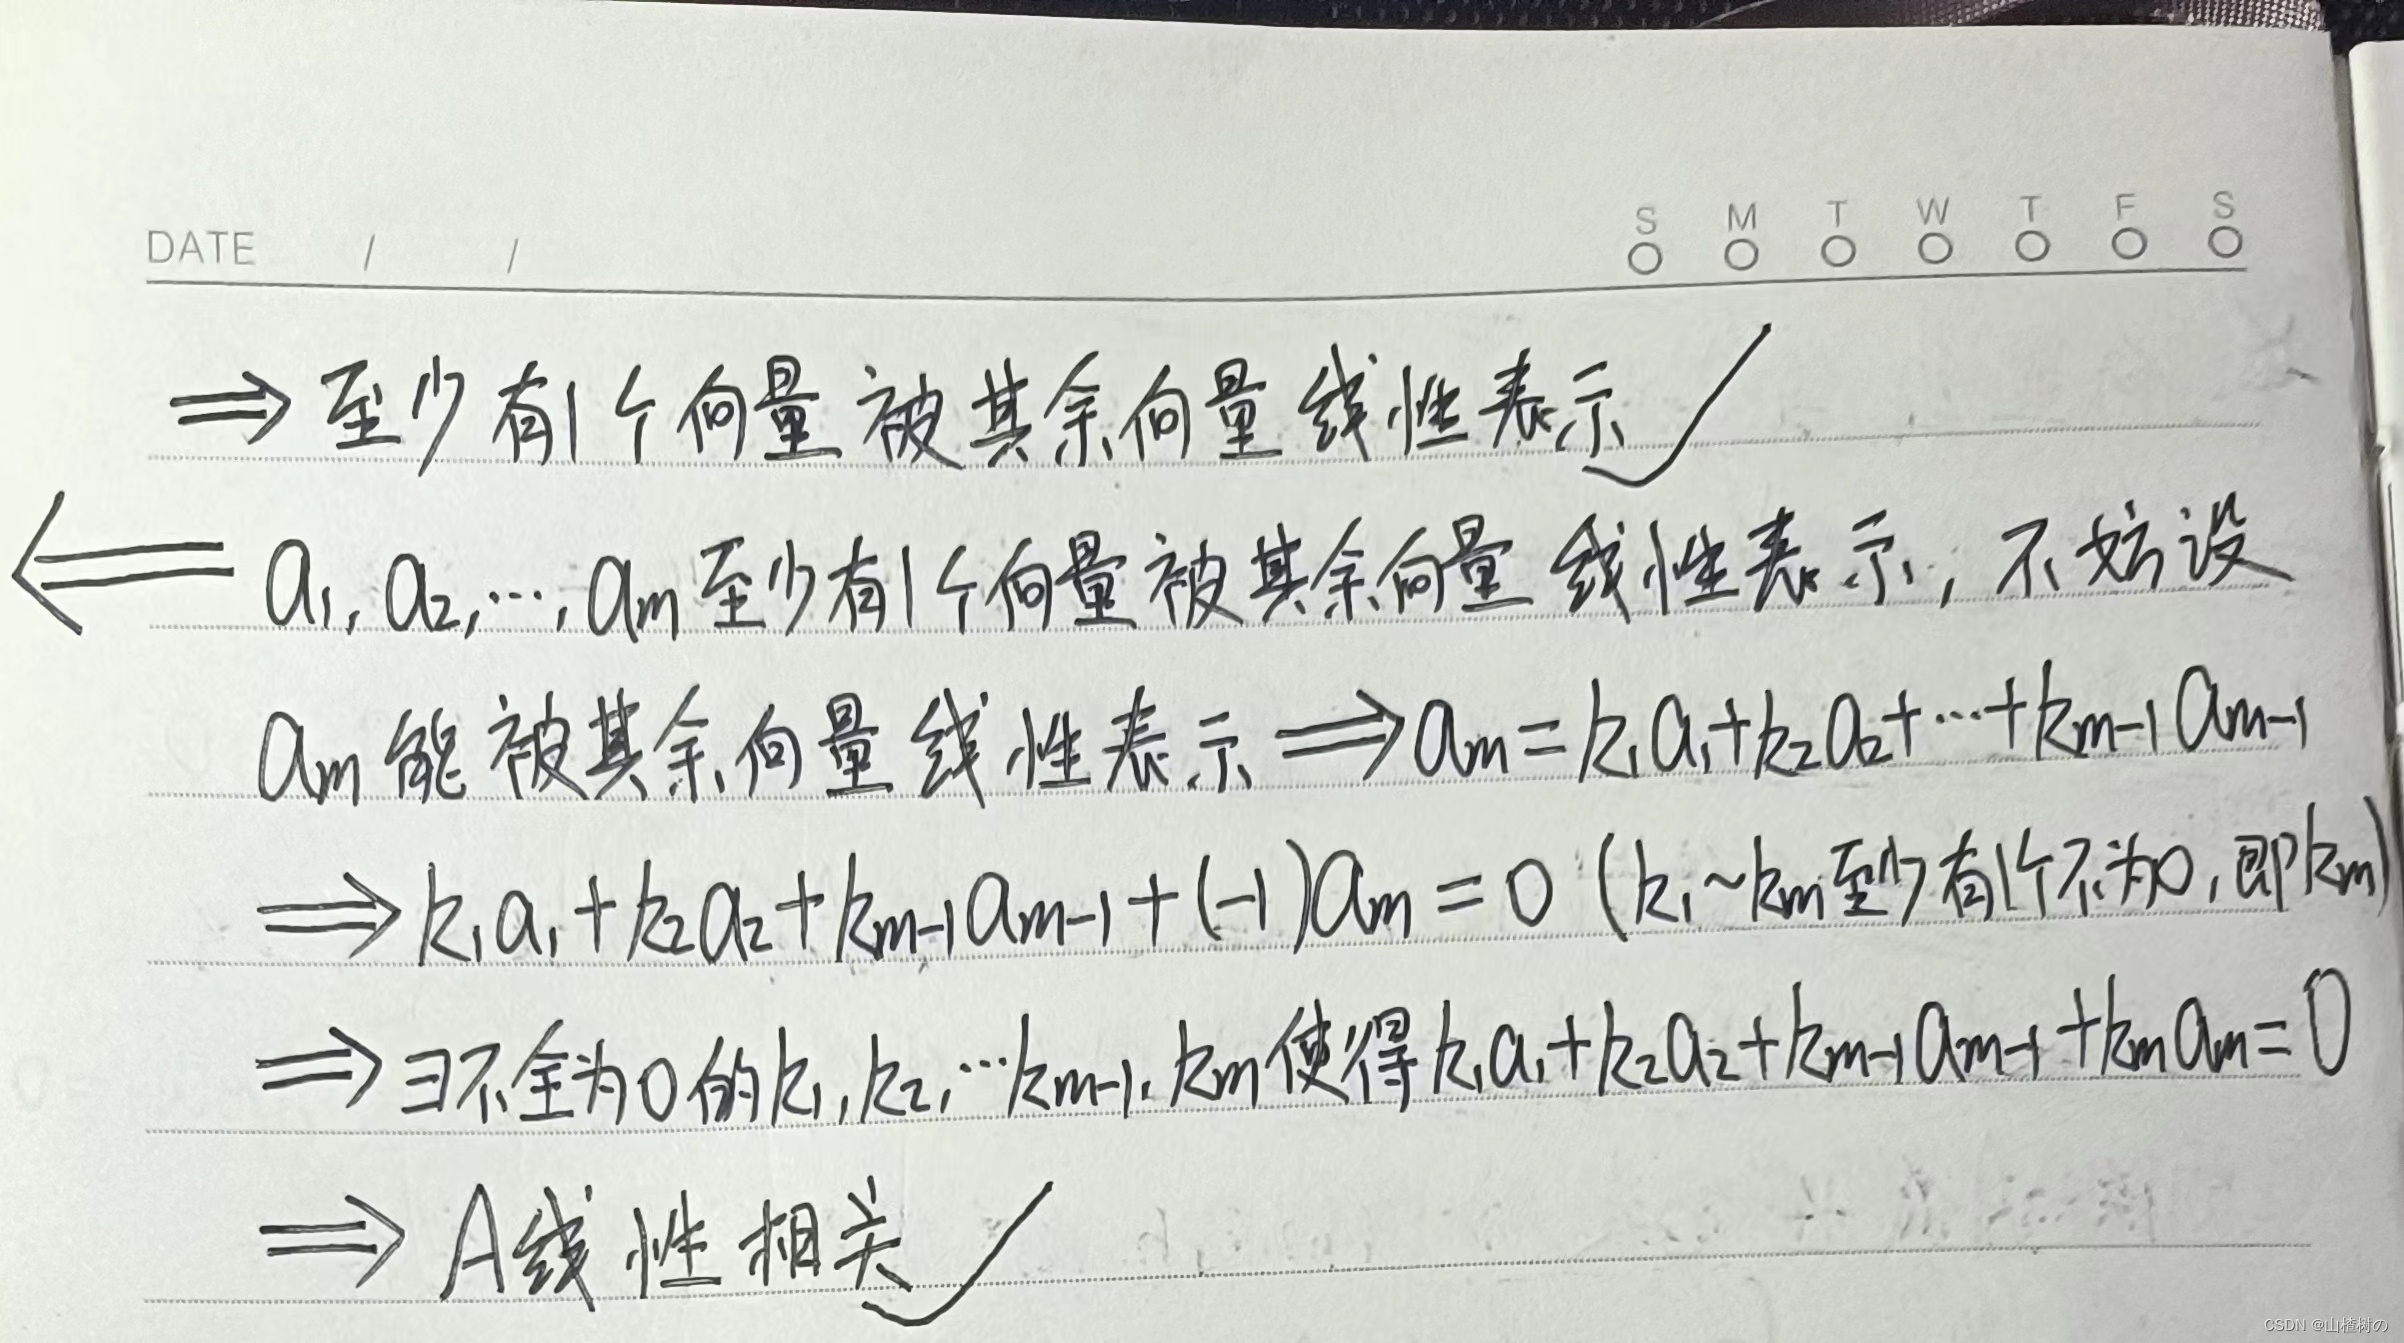 DATE / / S M T W T F S
⇒至少有1个向量被其余向量线性表示✓
⇐ a₁, a₂, ⋯, aₘ至少有1个向量被其余向量线性表示, 不妨设
aₘ能被其余向量线性表示⇒aₘ=k₁a₁+k₂a₂+⋯+kₘ₋₁aₘ₋₁
⇒k₁a₁+k₂a₂+kₘ₋₁aₘ₋₁+(-1)aₘ=0 (k₁~kₘ至少有1个不为0, 即kₘ)
⇒∃不全为0的k₁, k₂, ⋯kₘ₋₁, kₘ使得k₁a₁+k₂a₂+kₘ₋₁aₘ₋₁+kₘaₘ=0
⇒A线性相关✓
CSDN @山楂树の